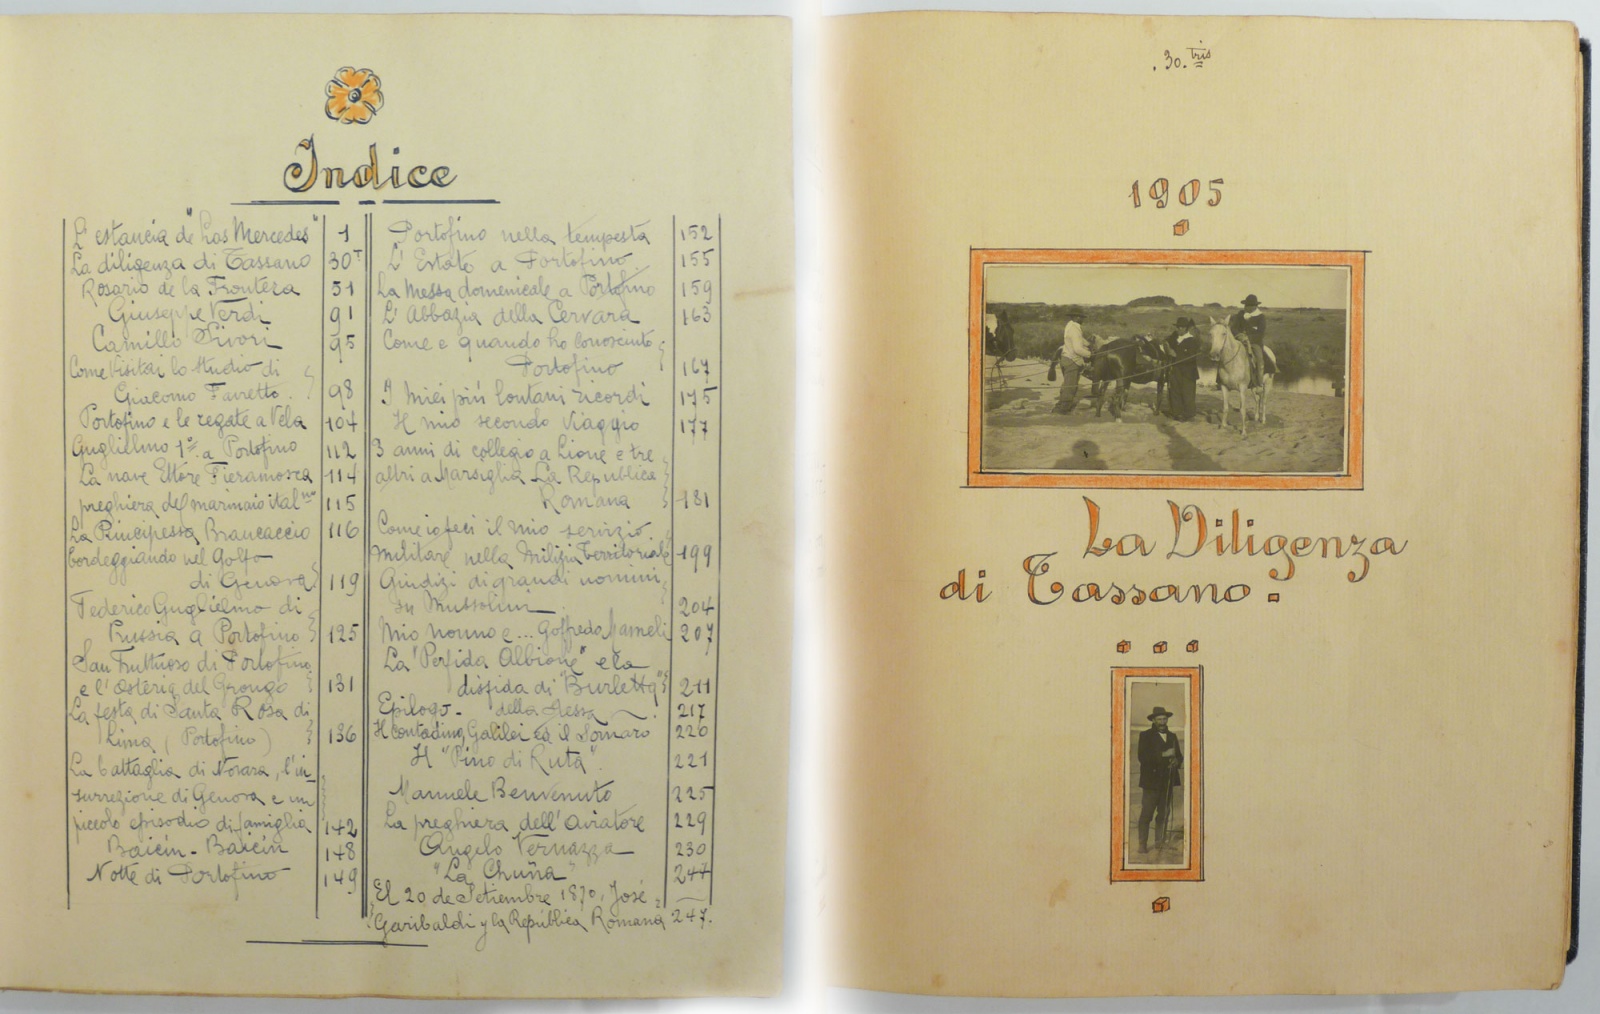 Indice
L'estancia de "Las Mercedes" 1
La diligenza di Tassano 30T
Rosario de la Frontera 51
Giuseppe Verdi 91
Camillo Sivori 95
Come visitai lo studio di
Giacomo Favretto. 98
Portofino e le regate a Vela 104
Guglielmo 1º a Portofino 112
La nave Ettore Fieramosca 114
preghiera del marinaio ital.no 115
La Principessa Brancaccio 116
bordeggiando nel Golfo
di Genova 119
Federico Guglielmo di
Prussia a Portofino 125
San Fruttuoso di Portofino
e l'Osteria del Grongo 131
La festa di Santa Rosa di
Lima (Portofino) 136
La battaglia di Novara, l'in-
surrezione di Genova e un
piccolo episodio di famiglia 142
Baicin - Baicin 148
Notte di Portofino 149
Portofino nella tempesta 152
L'Estate a Portofino 155
La Messa domenicale a Portofino 159
L'Abbazia della Cervara 163
Come e quando ho conosciuto
Portofino 167
I miei più lontani ricordi 175
Il mio secondo viaggio 177
3 anni di collegio a Lione e tre
altri a Marsiglia La Republica
Romana 181
Come io feci il mio servizio
Militare nella Milizia Territoriale 199
Giudizi di grandi uomini
su Mussolini 204
Mio nonno e... Goffredo Mameli 207
La "Perfida Albione" e la
disfida di "Burletta" 211
Epilogo - della 217
Il contadino, Galilei ed il Somaro 220
Il "Pino di Ruta". 221
Manuele Benvenuto 225
La preghiera dell'aviatore 229
Angelo Vernazza 230
"La Chuña" 244
El 20 de Setiembre 1870, José
Garibaldi y la República Romana 247.
.30.tris
1905
La Diligenza
di Tassano.